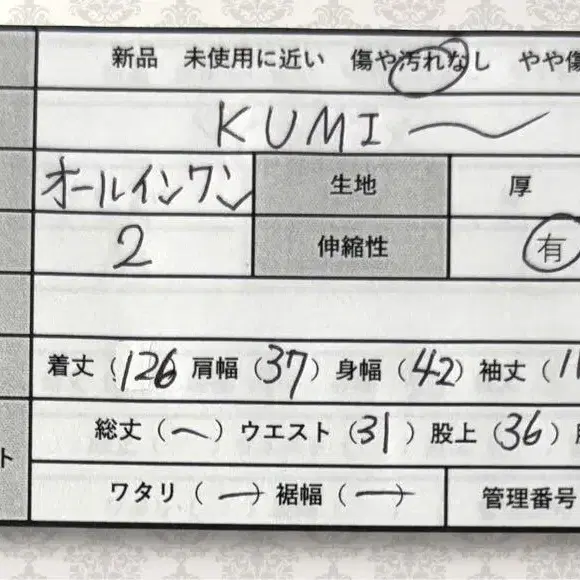 新品 未使用に近い 傷や汚れなし やや傷
KUMI〜
オールインワン 生地 厚
2 伸縮性 有
着丈（126 肩幅（37）身幅（42）袖丈（11
総丈（〜）ウエスト（31）股上（36）
ト
ワタリ（ー）裾幅（ー）管理番号